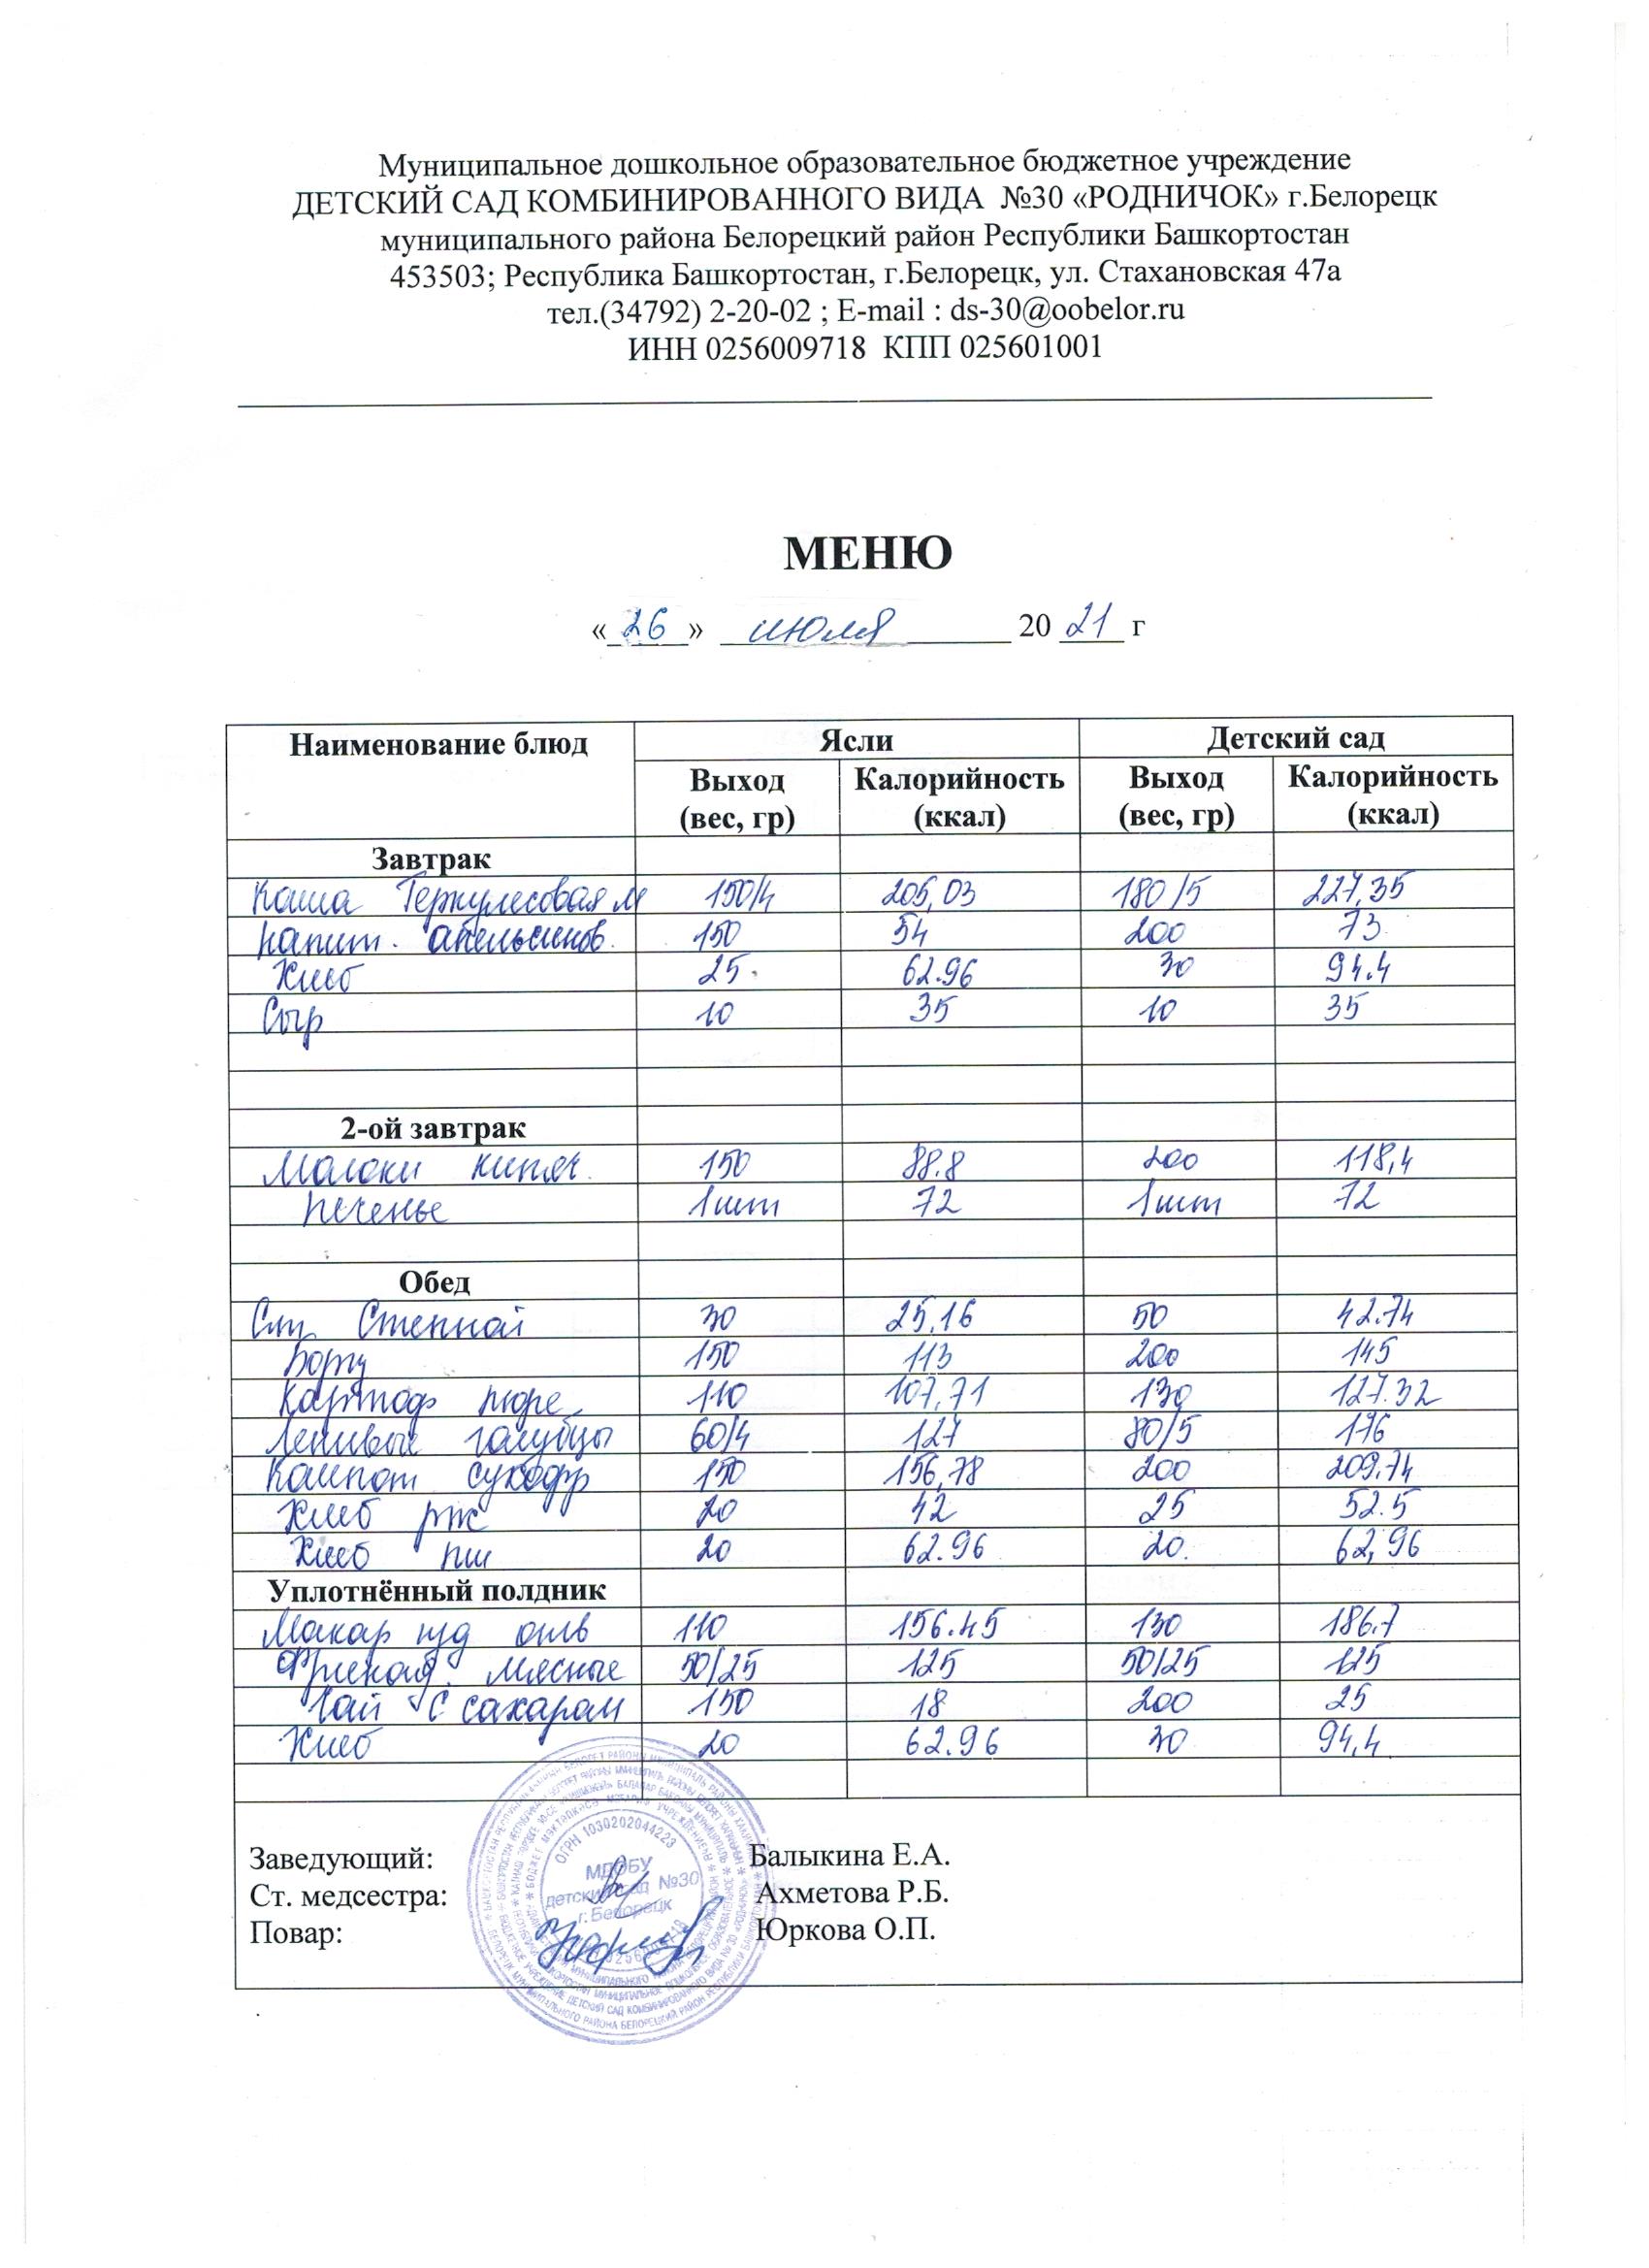 Муниципальное дошкольное образовательное бюджетное учреждение
ДЕТСКИЙ САД КОМБИНИРОВАННОГО ВИДА №30 «РОДНИЧОК» г.Белорецк
муниципального района Белорецкий район Республики Башкортостан
453503; Республика Башкортостан, г.Белорецк, ул. Стахановская 47а
тел.(34792) 2-20-02 ; E-mail : ds-30@oobelor.ru
ИНН 0256009718 КПП 025601001
МЕНЮ
«26» июля 20 21 г
Наименование блюд Ясли Детский сад
Выход (вес, гр) Калорийность (ккал) Выход (вес, гр) Калорийность (ккал)
Завтрак
Каша Геркулесовая м 150/4 205,03 180/5 227,35
напит. апельсинов. 150 54 200 73
Хлеб 25 62.96 30 94.4
Сыр 10 35 10 35
2-ой завтрак
Молоки кипяч. 150 88.8 200 118,4
печенье 1шт 72 1шт 72
Обед
Степной 30 25,16 50 42.74
Борщ 150 113 200 145
Картоф пюре 110 107,71 130 127.32
Ленивые голубцы 60/4 127 80/5 176
Компот сухофр 150 156,78 200 209.74
Хлеб рж 20 42 25 52.5
Хлеб пш 20 62.96 20. 62,96
Уплотнённый полдник
Макар изд отв 110 156.45 130 186.7
Фрикад. мясные 50/25 125 50/25 125
Чай с сахаром 150 18 200 25
Хлеб 20 62.96 30 94,4
Заведующий: Балыкина Е.А.
Ст. медсестра: Ахметова Р.Б.
Повар: Юркова О.П.
ОГРН 1030202044223
МДОБУ
детский сад №30
г.Белорецк